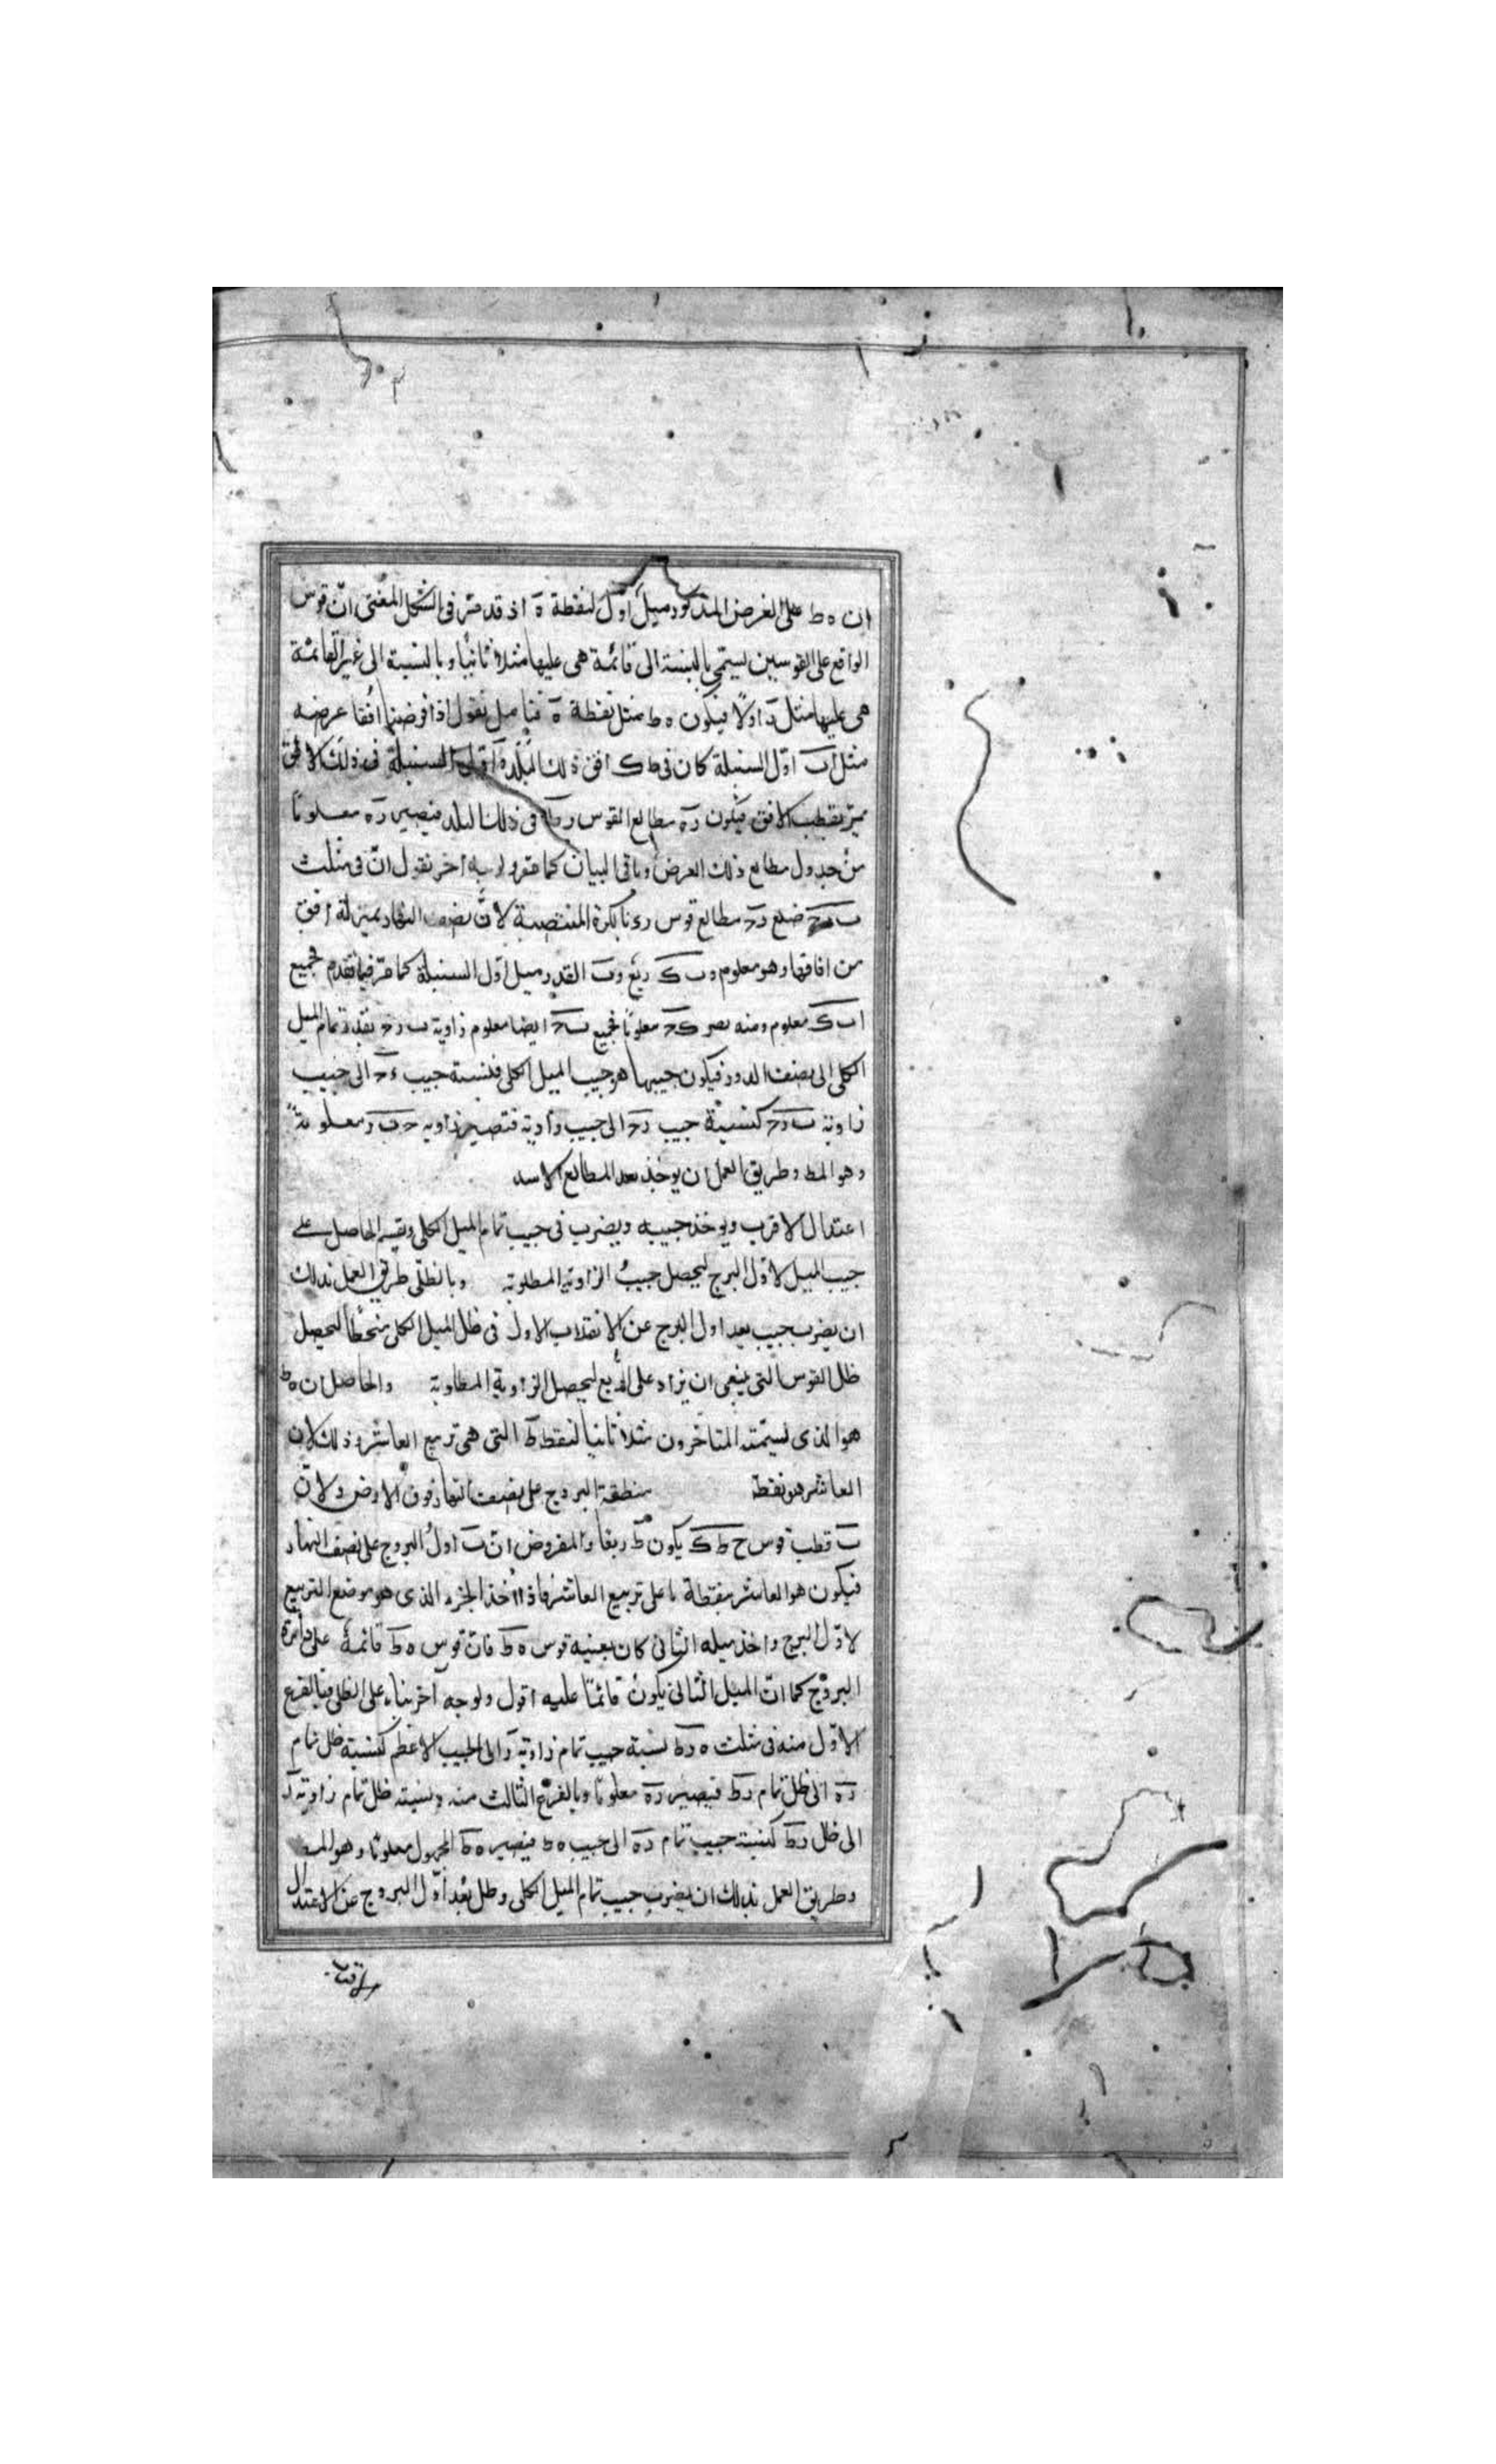 ان ه ط على الغرض المذكور ميل اول لنقطة ه اذ قد مر فى الشكل المغنى ان قوس
الواقع على القوسين يستمى بالنسبة الى قائمة هى عليها مثلا ثانيا وبالنسبة الى غير القائمة
هى عليها اولا فيكون ه ط نقطة ه نقول اذا فرضنا افقا عرضه
مثل ا ب اول السنبلة كان ح ط ك افق ذلك البلد اول السنبلة ذلك الافق
يمر بقطب الافق فيكون ر ه مطالع القوس ر ط فى ذلك البلد فيصير ر ه معلوما
من جدول مطالع ذلك العرض وباقى البيان كما مر وبوجه اخر نقول ان فى مثلث
ضلع مطالع قوس بكرة المنتصبة لان نصف النهار بمنزلة افق
من افاقها وهو معلوم و ب ك ربع القدر ميل اول السنبلة كما مر فيما تقدم فجميع
ا ب ك معلوم ومنه معلوما فجميع ايضا معلوم زاوية بقدر تمام الميل
الكلى الى نصف الدور فيكون جيبها هو جيب الميل الكلى فنسبة جيب الى جيب
زاوية كنسبة جيب الى جيب زاوية فتصير زاوية معلومة
وهو المط وطريق العمل ان يوخذ بعد المطالع الاسد
اعتدال الاقرب ويوخذ جيبه ويضرب فى جيب تمام الميل الكلى ويقسم الحاصل على
جيب الميل لاول البرج ليحصل جيب الزاوية المطلوبة وبالظلى طريق العمل بذلك
ان يضرب جيب بعد اول البرج عن الانقلاب الاول فى ظل الميل الكلى منحطا ليحصل
ظل القوس التى ينبغى ان يزاد على الربع ليحصل الزاوية المطلوبة والحاصل ان ه ط
هو الذى يستمته المتاخرون ثانيا لنقطة ط التى هى تربيع العاشر وذلك لان
العاشر هو نقطة منطقة البروج على نصف النهار فوق الارض ولان
ب قطب قوس ح ط ك يكون ط ربعا والمفروض ان ب اول البروج على نصف النهار
فيكون هو العاشر فنقطة ط على تربيع العاشر فاذا اخذ الجزء الذى هو موضع التربيع
لاول البرج واخذ ميله الثانى كان بعينيه قوس ه ط فان قوس ه ط قائمة على دائرة
البروج كما ان الميل الثانى يكون قائمتا عليه اقول ولوجه اخر بناء على الظلى فبالفرع
الاول منه فى مثلث ه ر ط نسبة جيب تمام زاوية ر الى الجيب الاعظم كنسبة ظل تمام
ر ه الى ظل تمام ر ط فيصير ر ه معلوما وبالفرع الثالث منه ونسبته ظل تمام زاوية ر
الى ظل ر ط كنسبة جيب تمام ر ه الى جيب ه ط فيصير ه ط المجهول معلوما وهو المط
وطريق العمل بذلك ان يضرب جيب تمام الميل الكلى وظل بعد اول البروج عن الاعتدال